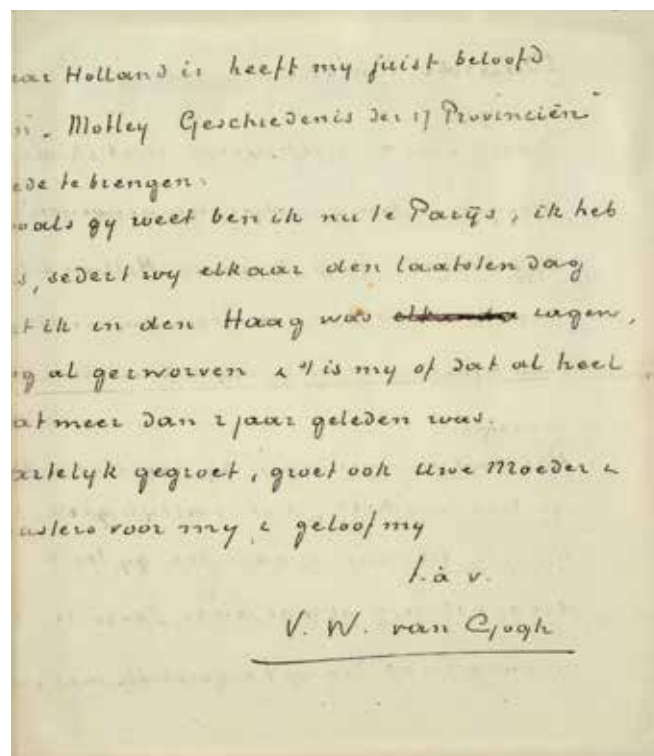 aar Holland is heeft my juist beloofd
n". Motley Geschiedenis der 17 Provinciën"
ede te brengen.
oals gy weet ben ik nu te Parijs, ik heb
s, sedert wy elkaar den laatsten dag
t ik in den Haag was elkander zagen,
g al gezworven & 't is my of dat al heel
at meer dan 2 jaar geleden was.
artelyk gegroet, groet ook Uwe Moeder &
usters voor my, & geloof my
t. à v.
V. W. van Gogh